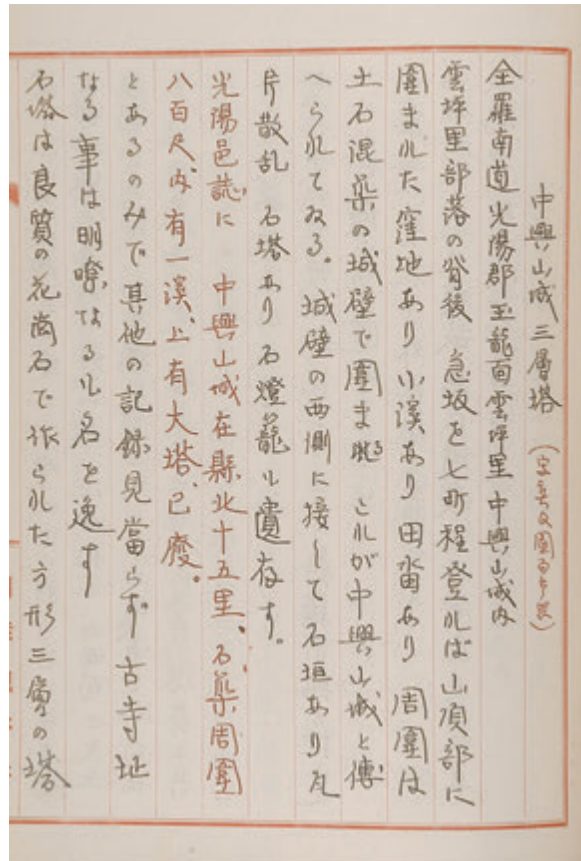 中興山城三層塔
全羅南道光陽郡玉龍面雲坪里中興山城内
雲坪里部落の背後 急坂を七町程登れば山頂部に
圍まれた窪地あり 小溪あり 田畓あり 周圍は
土石混築の城壁で圍まる これが中興山城と傳
へられてゐる。城壁の西側に接して石垣あり瓦
片散乱 石塔あり 石燈籠も遺存す。
光陽邑誌に 中興山城在縣北十五里、石築周圍
八百尺、内有一溪、上有大塔、已廢。
とあるのみで其他の記録見當らず 古寺址
なる事は明瞭なるも名を逸す
石塔は良質の花崗石で作られた方形三層の塔